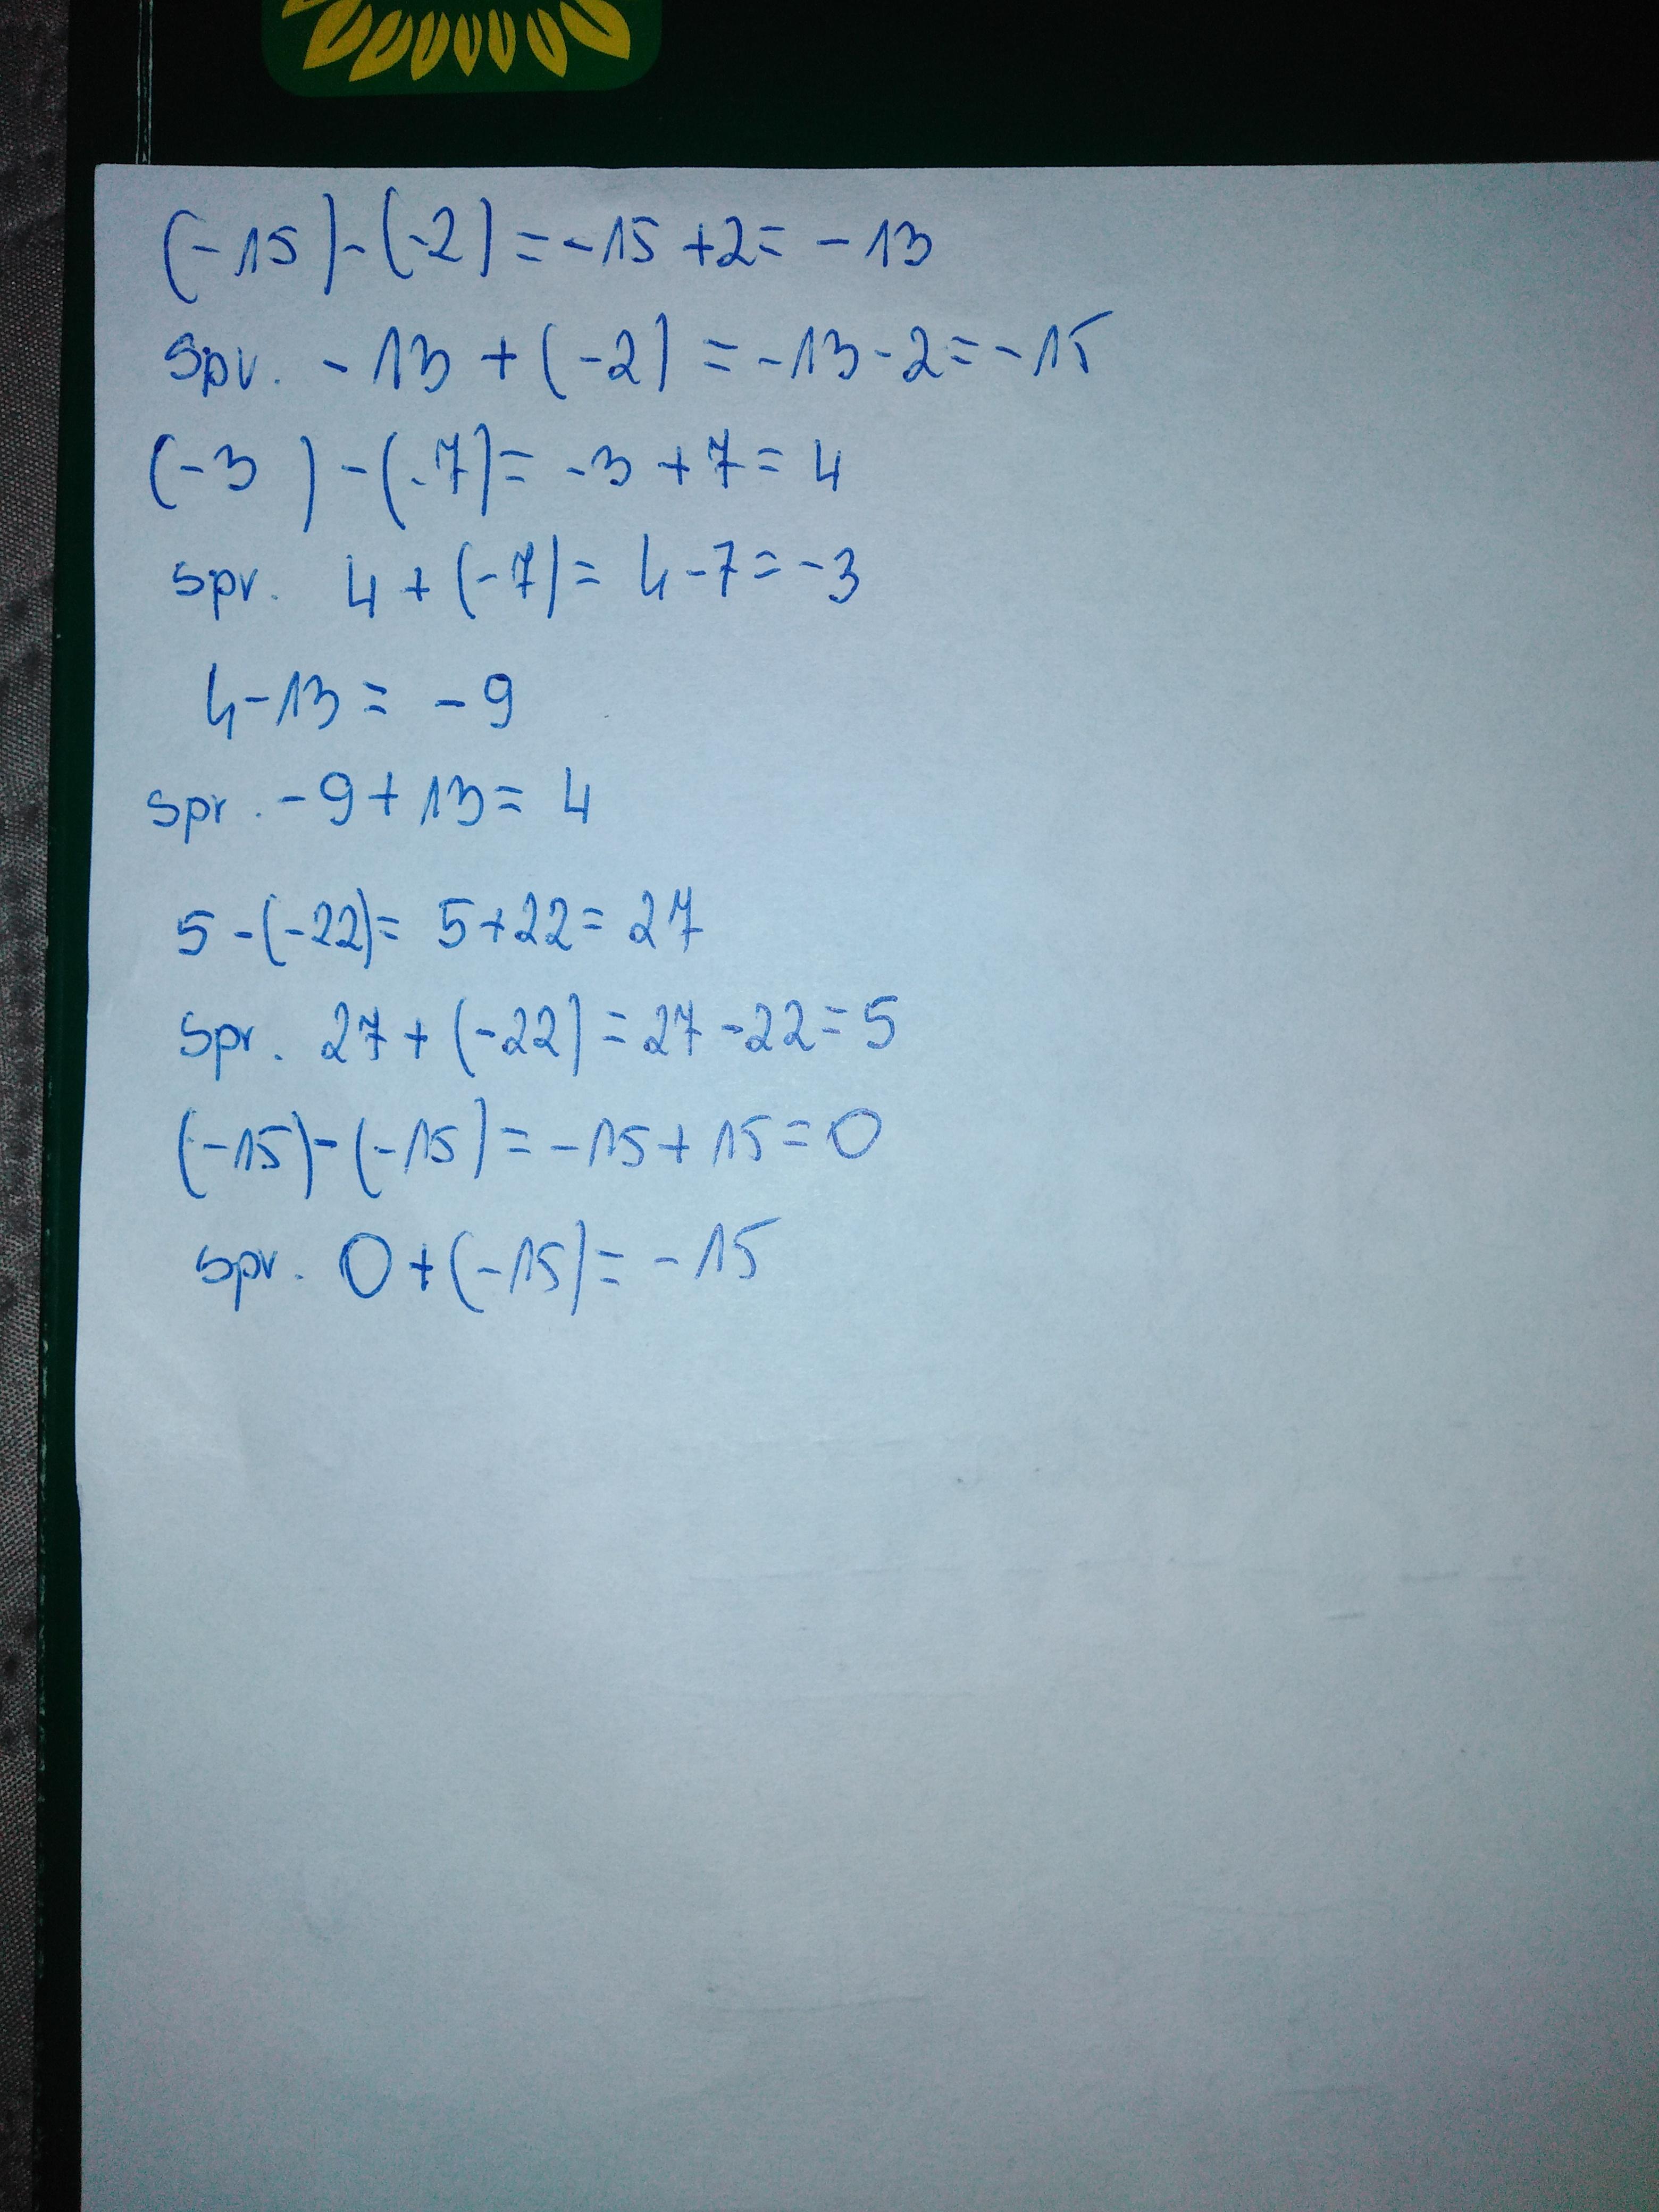 (-15)-(-2)=-15+2=-13
Spr. -13+(-2)=-13-2=-15
(-3)-(-7)=-3+7=4
spr. 4+(-7)=4-7=-3
4-13=-9
spr. -9+13=4
5-(-22)=5+22=27
Spr. 27+(-22)=27-22=5
(-15)-(-15)=-15+15=0
spr. 0+(-15)=-15